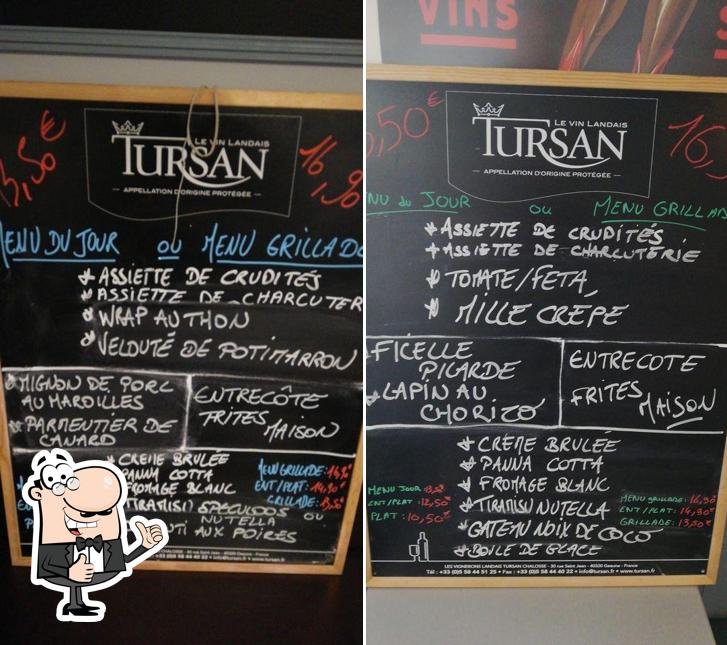 LE VIN LANDAIS
TURSAN
APPELLATION D'ORIGINE PROTÉGÉE
3,50€
16,90
MENU DU JOUR ou MENU GRILLADE
* ASSIETTE DE CRUDITÉS
* ASSIETTE DE CHARCUTER
* WRAP AU THON
* VELOUTÉ DE POTIMARRON
* MIGNON DE PORC
AU MAROILLES
* PARMENTIER DE
CANARD
ENTRECÔTE
FRITES
MAISON
* CREME BRULÉE
PANNA COTTA
FROMAGE BLANC
TIRAMISU SPECULOOS
OU
NUTELLA
AUX POIRES
MENU GRILLADE: 16,90€
ENT/PLAT: 14,90€
GRILLADE: 13,50€
VINS
LE VIN LANDAIS
TURSAN
APPELLATION D'ORIGINE PROTÉGÉE
3,50€
16,
ENU du JOUR ou MENU GRILLAD
* ASSIETTE DE CRUDITÉS
* ASSIETTE DE CHARCUTERIE
* TOMATE/FETA
* MILLE CRÊPE
FICELLE
PICARDE
* LAPIN AU
CHORIZO
ENTRECOTE
FRITES
MAISON
* CREME BRULÉE
* PANNA COTTA
* FROMAGE BLANC
* TIRAMISU NUTELLA
* GATEAU NOIX DE COCO
* BOULE DE GLACE
MENU JOUR: 13,50€
ENT/PLAT: 12,50€
PLAT: 10,50€
MENU GRILLADE: 16,90€
ENT/PLAT: 14,90€
GRILLADE: 13,50€
LES VIGNERONS LANDAIS TURSAN CHALOSSE - 30 rue Saint Jean - 40320 Geaune - France
Tél : +33 (0)5 58 44 51 25 • Fax : +33 (0)5 58 44 40 22 • info@tursan.fr • www.tursan.fr